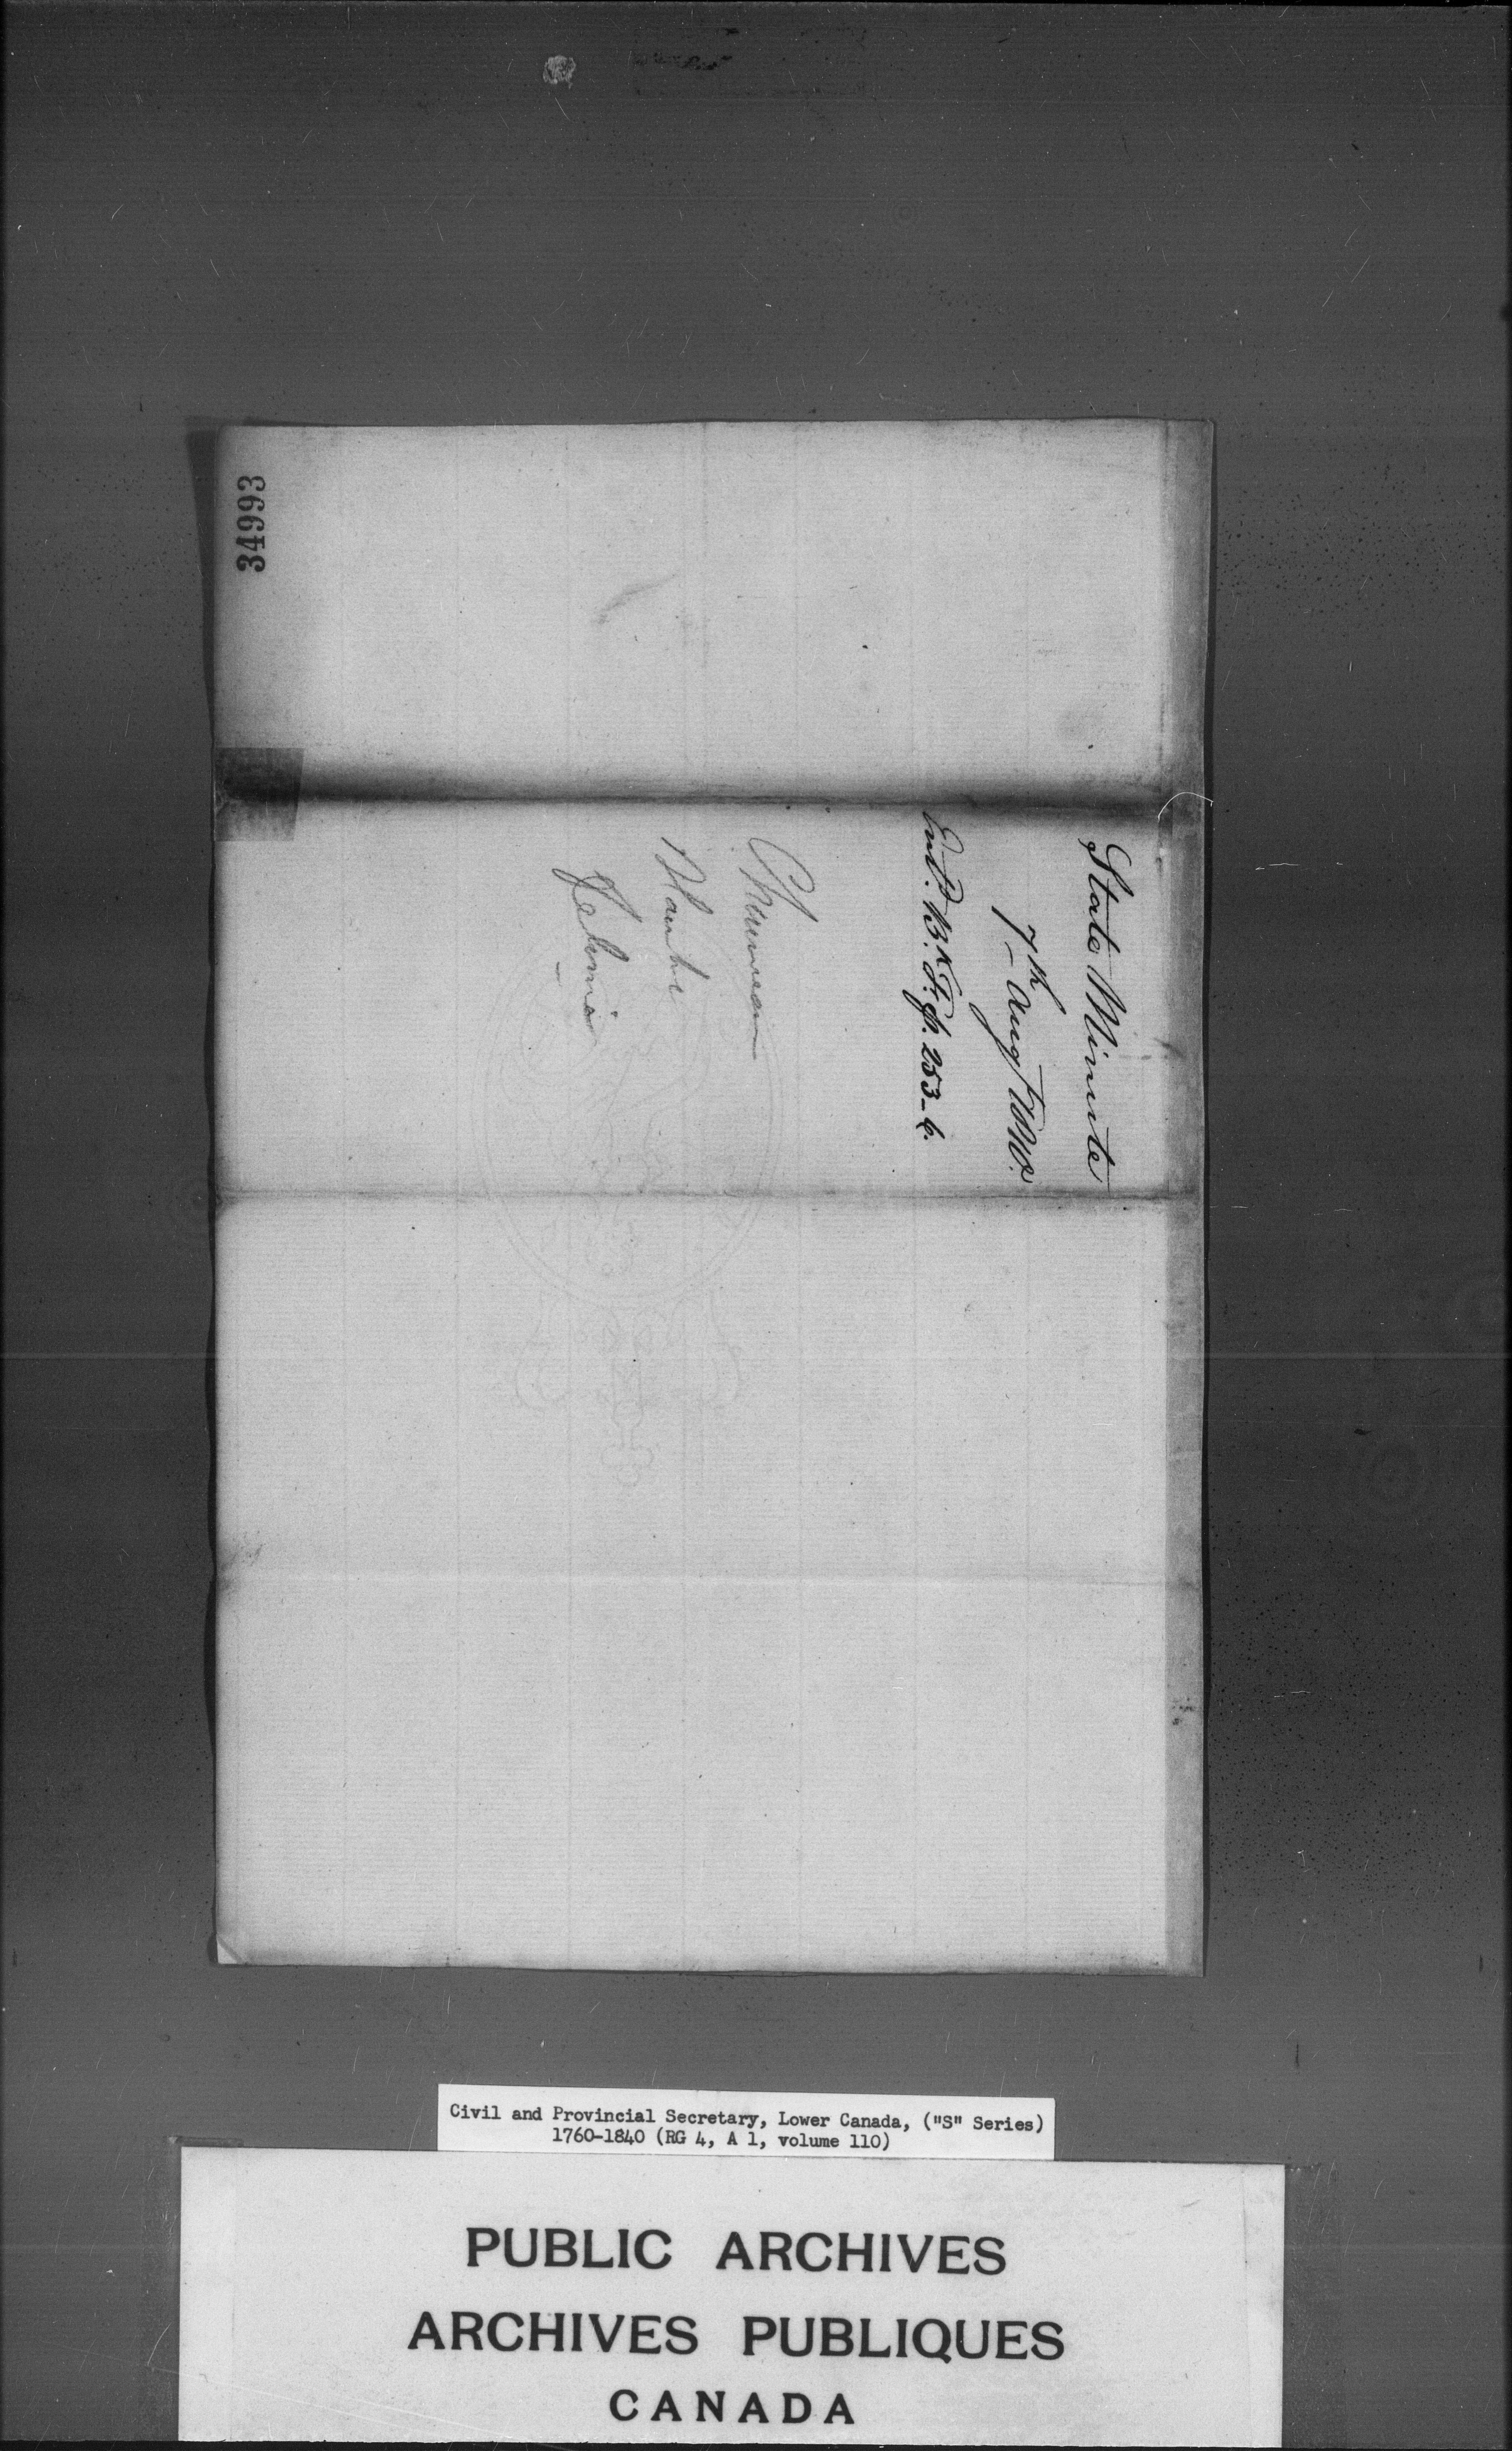 34993
State Minute
7th Augt
Entd. Bk. F. p. 253-6.
Blanche
Civil and Provincial Secretary, Lower Canada, ("S" Series)
1760-1840 (RG 4, A 1, volume 110)
PUBLIC ARCHIVES
ARCHIVES PUBLIQUES
CANADA